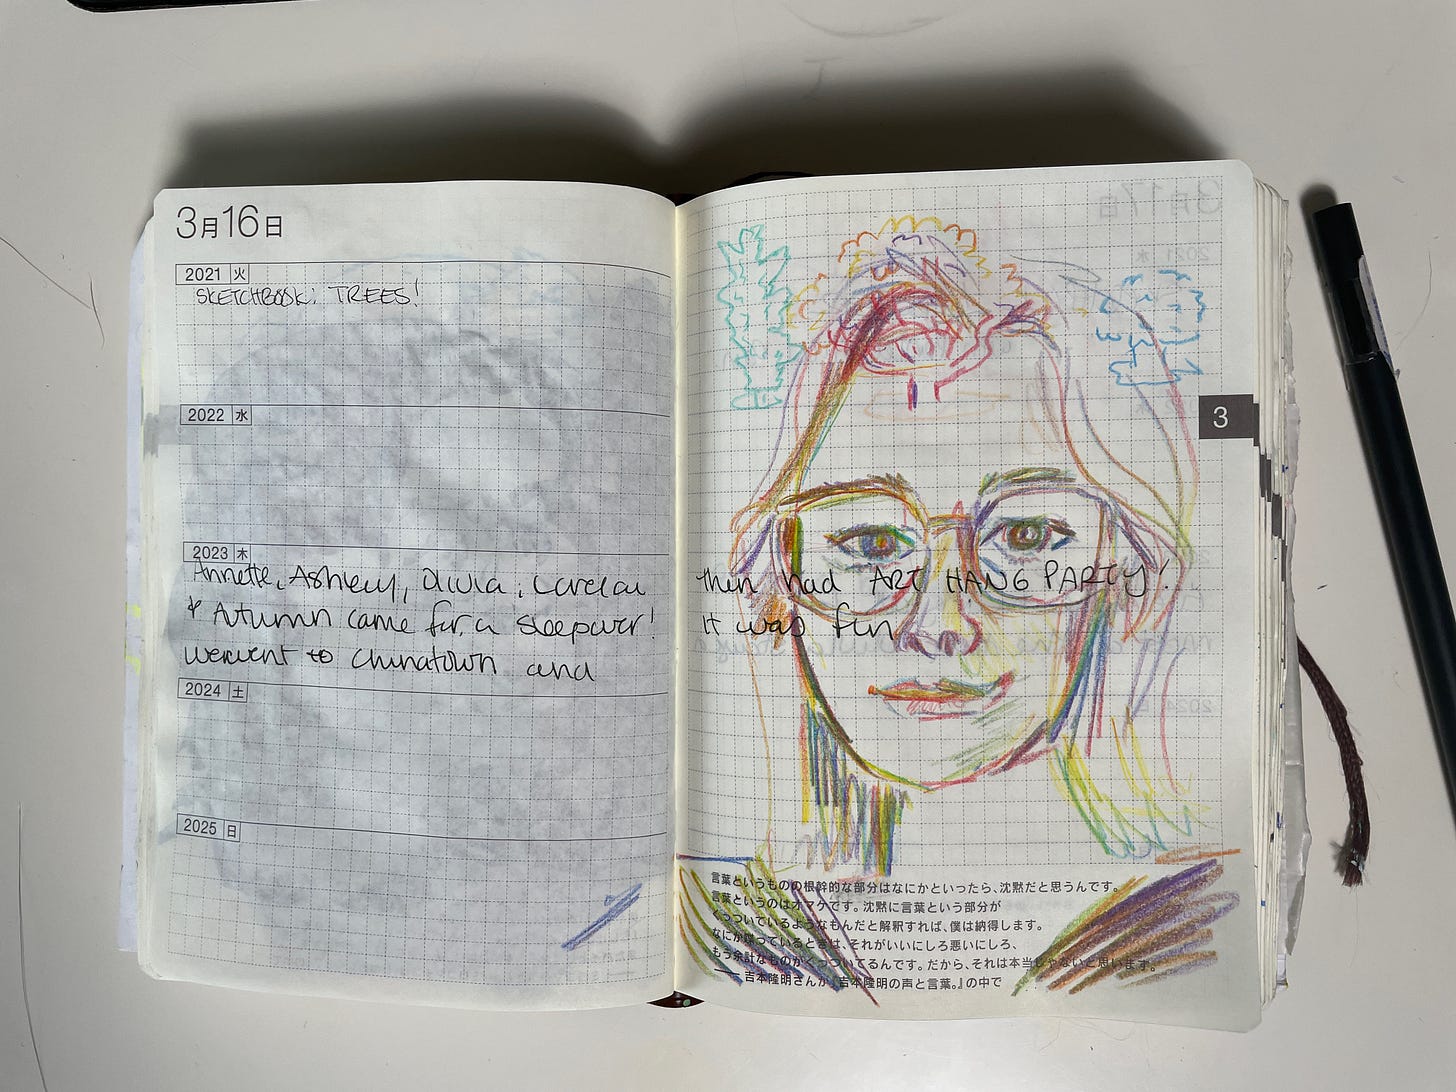 3月16日
2021 火
SKETCHBOOK: TREES!
2022 水
2023 木
Annette, Ashley, Olivia, Lorelai
& Autumn came for a sleepover!
went to Chinatown and
2024 土
2025 日
3月17日
3
then had ART HANG PARTY!
it was fun
言葉というものの根幹的な部分はなにかといったら、沈黙だと思うんです。
言葉というのはオマケです。沈黙に言葉という部分が
くっついているようなもんだと解釈すれば、僕は納得します。
なにか喋っているときは、それがいいにしろ悪いにしろ、
もう余計なものがくっついてるんです。だから、それは本当じゃないと思います。
── 吉本隆明さんが『吉本隆明の声と言葉。』の中で